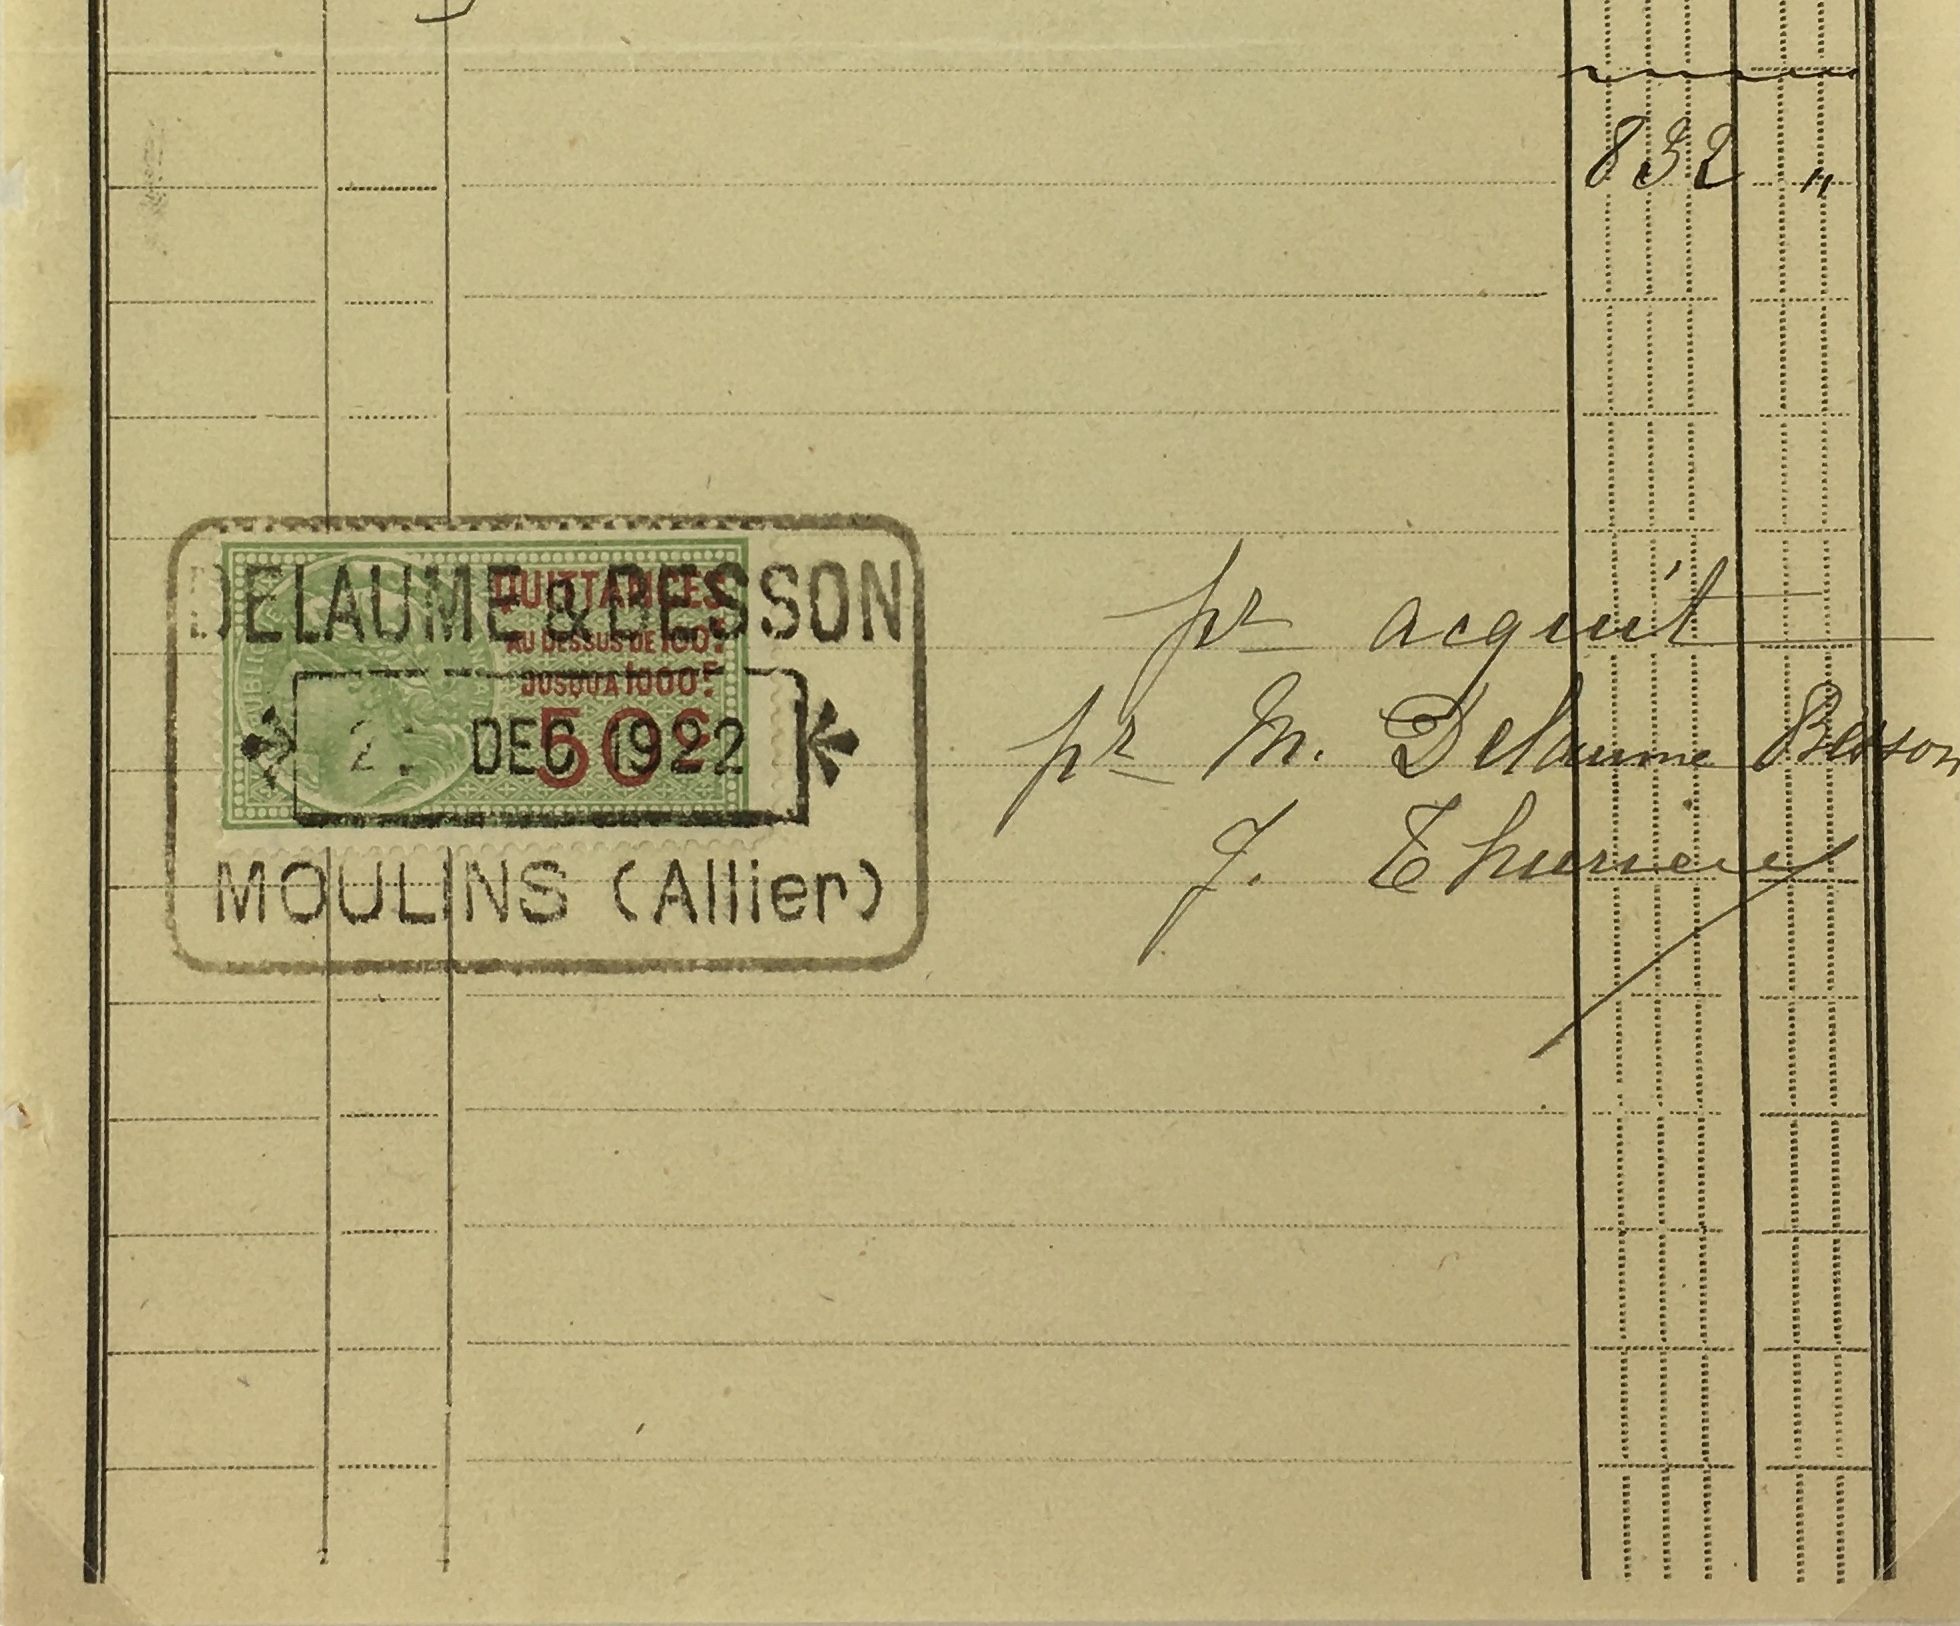 832 "
DELAUME & BESSON
QUITTANCES
AU DESSUS DE 100F
JUSQU'A 1000F
50c
DEC 1922
MOULINS (Allier)
pr acquit
pr M. Delaume Besson
J.